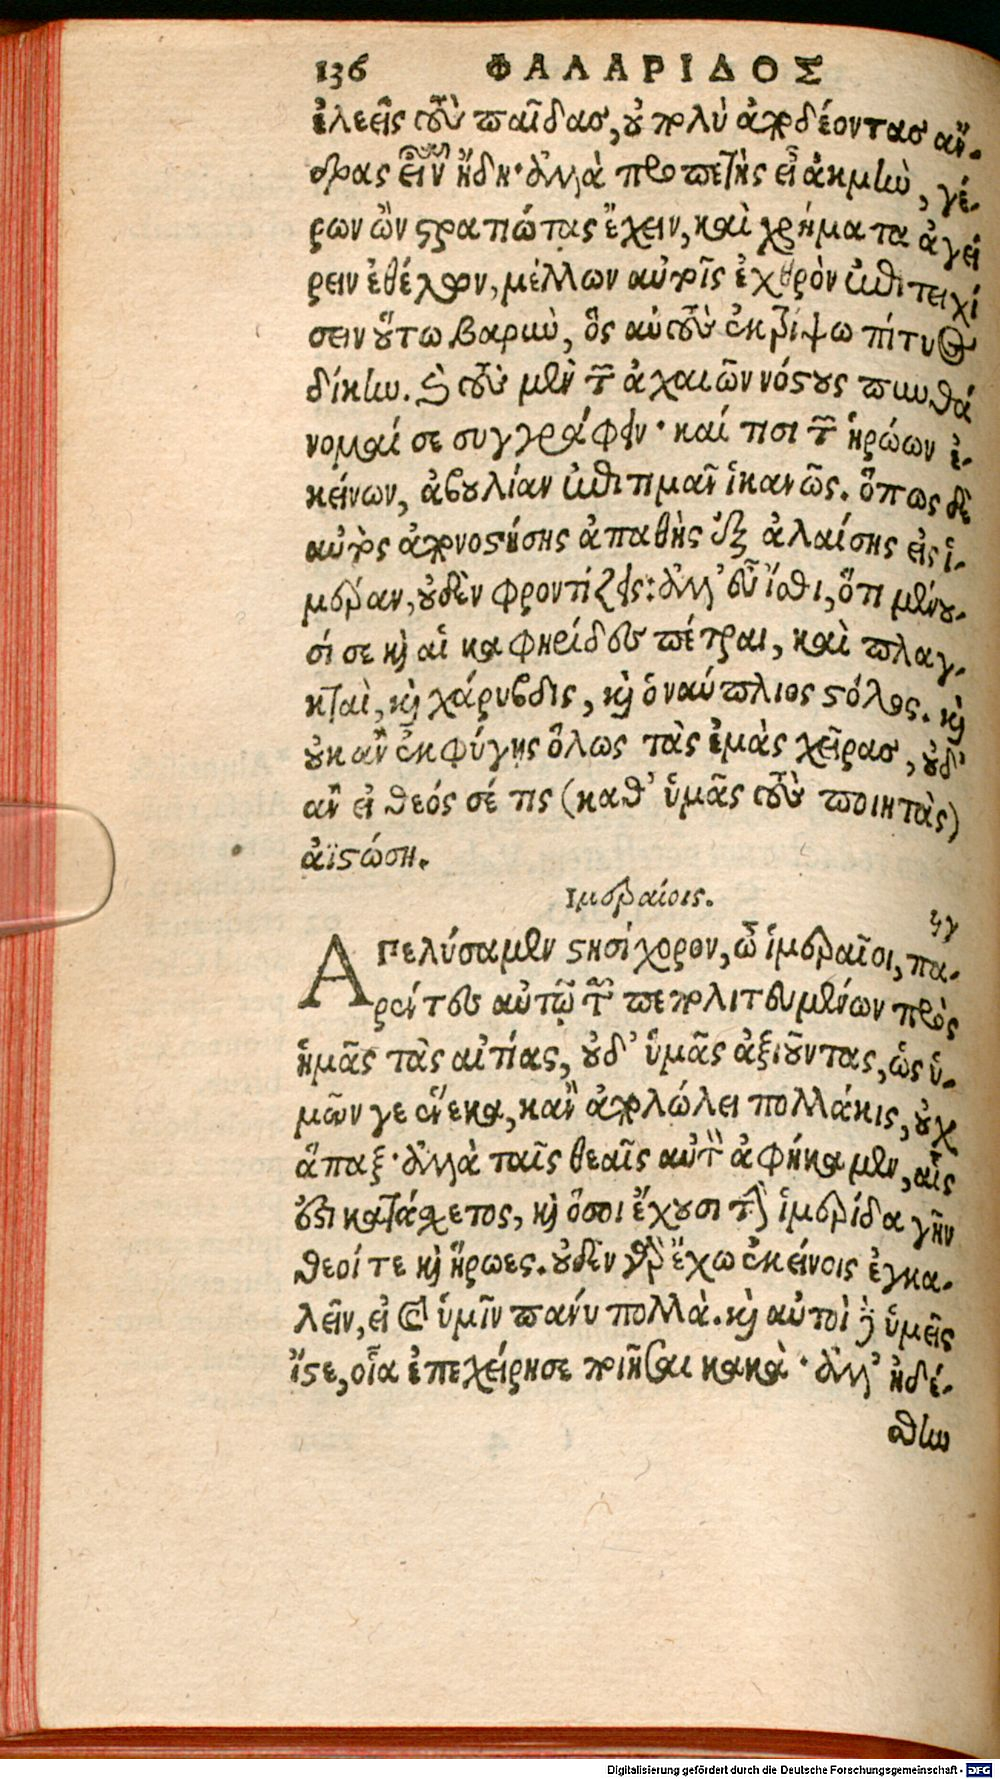 136 ΦΑΛΑΡΙΔΟΣ
ἐλεεῖς τοὺς παῖδας, οὐ πολὺ ἀποδέοντας ἄν-
δρας εἶναι ἤδη· ἀλλὰ προπετὴς εἶ ἀκμὴν, γέ-
ρων ὢν στρατιώτας ἔχειν, καὶ χρήματα ἀγεί
ρειν ἐθέλων, μέλλων αὐτοῖς ἐχθρὸν ἐπιτειχί
σειν οὕτω βαρμὺ, ὃς αὐτοὺς ἐκτρίψω πίτυος
δίκην. σὺ τοὺς μὲν τῶν ἀχαιῶν νόστους πυνθά
νομαί σε συγγράφειν· καί τισι τῶν ἡρώων ἐ-
κείνων, ἀβουλίαν ἐπιτιμᾶν ἱκανῶς. ὅπως δὲ
αὐτὸς ἀπονοστήσῃς ἀπαθὴς ἐξ ἀλαίσης εἰς ἱ-
μέραν, οὐδὲν φροντίζεις: ἀλλ' εὖ ἴσθι, ὅτι μένου-
σί σε καὶ αἱ καφηρίδες πέτραι, καὶ πλαγ-
κταὶ, καὶ χάρυβδις, καὶ ὁ ναύπλιος στόλος. καὶ
οὐκ ἂν ἐκφύγῃς ὅλως τὰς ἐμὰς χεῖρας, οὐδ'
ἂν εἰ θεός σέ τις (καθ' ὑμᾶς τοὺς ποιητὰς)
ἀϊστώσῃ.
Ἱμεραίοις.
ϟγ
ΑΠελύσαμεν στησίχορον, ὦ ἱμεραῖοι, πα-
ρέντες αὐτῷ τῶν πεπολιτευμένων πρὸς
ἡμᾶς τὰς αἰτίας, οὐδ' ὑμᾶς ἀξιοῦντας, ὡς ὑ-
μῶν γε ἕνεκα, κἂν ἀπολώλει πολλάκις, οὐχ
ἅπαξ· ἀλλὰ ταῖς θεαῖς αὐτὸν ἀφήκαμεν, αἷς
ἐστι κατάσχετος, καὶ ὅσοι ἔχουσι τὴν ἱμερίδα γῆν
θεοί τε καὶ ἥρωες. οὐδὲν γὰρ ἔχω ἐκείνοις ἐγκα-
λεῖν, εἰ καὶ ὑμῖν πάνυ πολλὰ. καὶ αὐτοὶ γὰρ ὑμεῖς
ἴστε, οἷα ἐπεχείρησε ποιῆσαι κακὰ· ἀλλ' ᾐδέ-
σθην
Digitalisierung gefördert durch die Deutsche Forschungsgemeinschaft - DFG